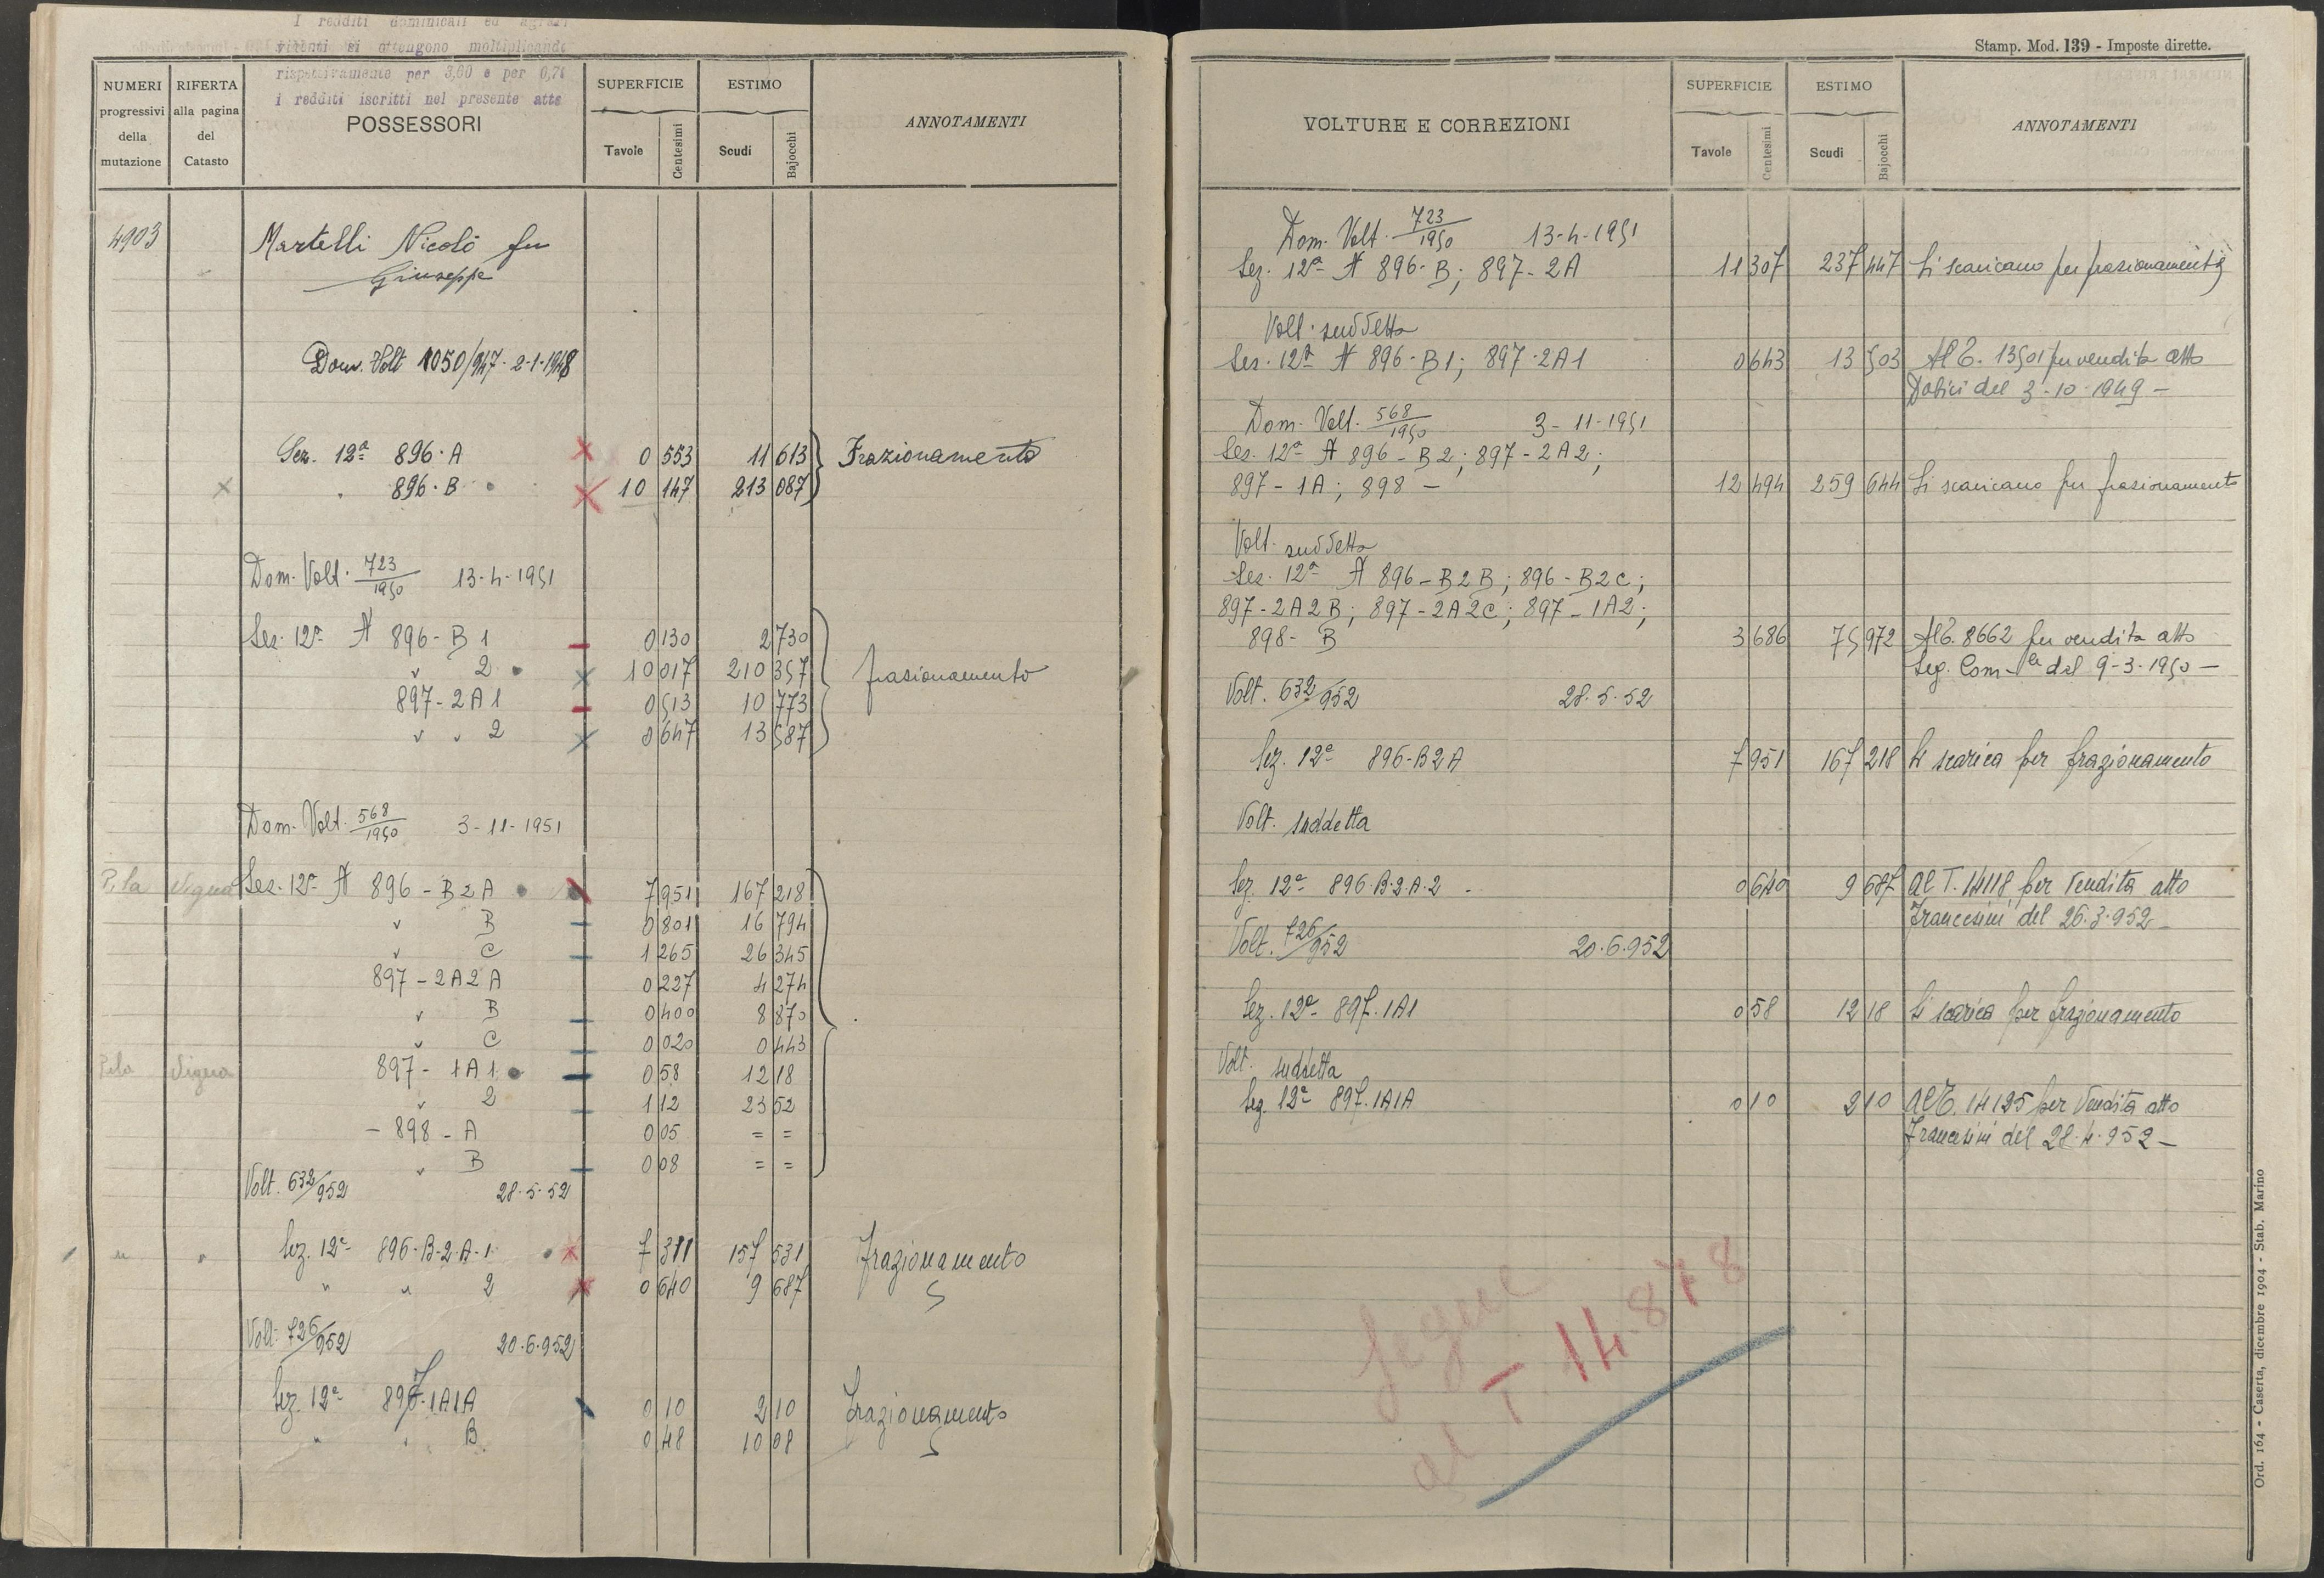 I redditi dominicali ed agrari
si ottengono moltiplicando
rispettivamente per 3,60 e per 0,7
i redditi iscritti nel presente atto
NUMERI progressivi della mutazione
RIFERTA alla pagina del Catasto
POSSESSORI
SUPERFICIE
Tavole Centesimi
ESTIMO
Scudi Bajocchi
ANNOTAMENTI
4903 Martelli Nicolò fu
Giuseppe
Dom. Volt 1050/947 - 2-1-1948
Sez. 12ª 896-A 0 553 11 613 Frazionamento
896-B 10 147 213 087
Dom. Volt. 723/1950 13-4-1951
Sez. 12ª A 896-B 1 0 130 2 730
" 2 10 017 210 357 frazionamento
897-2A1 0 513 10 773
" " 2 0 647 13 587
Dom. Volt. 568/1950 3-11-1951
P. la Vigna Sez. 12ª A 896-B2A 7 951 167 218
" B 0 801 16 794
" C 1 265 26 345
897-2A2A 0 227 4 274
" B 0 400 8 870
" C 0 020 0 443
P. la Vigna 897-1A1 0 58 12 18
" 2 1 12 23 52
- 898-A 0 05 = =
" B 0 08 = =
Volt. 632/952 28.5.52
" " Sez. 12ª 896-B-2-A-1 7 311 157 531 Frazionamento
" " 2 0 640 9 687
Volt. 726/952 20.6.952
Sez. 12ª 897-1A1A 0 10 2 10 Frazionamento
" " B 0 48 10 08
Stamp. Mod. 139 - Imposte dirette.
VOLTURE E CORREZIONI
SUPERFICIE
Tavole Centesimi
ESTIMO
Scudi Bajocchi
ANNOTAMENTI
Dom. Volt. 723/1950 13-4-1951
Sez. 12ª A 896-B; 897-2A 11 307 237 447 Si scaricano per frazionamento
Volt. suddetta
Sez. 12ª A 896-B1; 897-2A1 0 643 13 503 Al T. 13501 per vendita atto
del 3-10-1949 -
Dom. Volt. 568/1950 3-11-1951
Sez. 12ª A 896-B2; 897-2A2;
897-1A; 898 - 12 494 259 644 Si scaricano per frazionamento
Volt. suddetta
Sez. 12ª A 896-B2B; 896-B2C;
897-2A2B; 897-2A2C; 897-1A2;
898-B 3 686 75 972 Al T. 8662 per vendita atto
Seg. Com-le del 9-3-1950 -
Volt. 632/952 28.5.52
Sez. 12ª 896-B2A 7 951 167 218 Si scarica per frazionamento
Volt. suddetta
Sez. 12ª 896-B-2-A-2 0 640 9 687 Al T. 14118 per vendita atto
Francesini del 26.3.952 -
Volt. 726/952 20.6.952
Sez. 12ª 897.1A1 0 58 12 18 Si scarica per frazionamento
Volt. suddetta
Sez. 12ª 897.1A1A 0 10 2 10 Al T. 14125 per vendita atto
Francesini del 28.4.952 -
Segue
al T 14.878
Ord. 164 - Caserta, dicembre 1904 - Stab. Marino